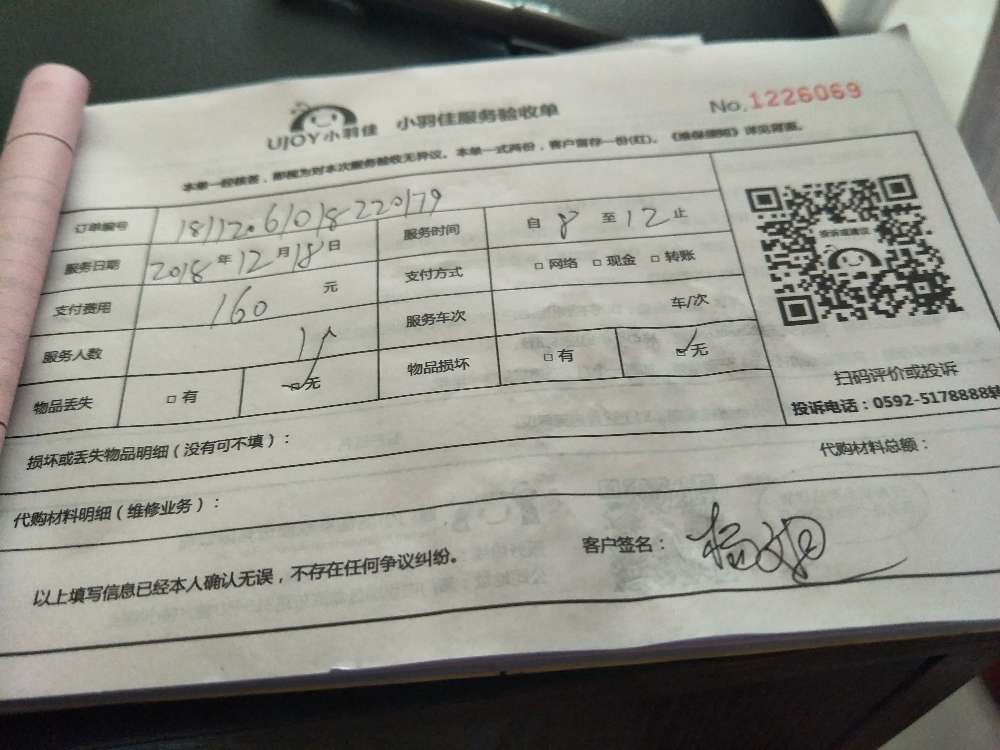 UJOY小羽佳 小羽佳服务验收单 No.1226069
本单一经核签，即视为对本次服务验收无异议。本单一式两份，客户留存一份(红)。《维保须知》详见背面。
订单编号 18112061018220179 服务时间 自 8 至 12 止
服务日期 2018年12月18日 支付方式 □网络 □现金 □转账
支付费用 160 元 服务车次 车/次
服务人数 1人 物品损坏 □有 ☑无
物品丢失 □有 ☑无
投诉或建议
扫码评价或投诉
投诉电话：0592-5178888转
损坏或丢失物品明细（没有可不填）：
代购材料明细（维修业务）： 代购材料总额：
以上填写信息已经本人确认无误，不存在任何争议纠纷。 客户签名：